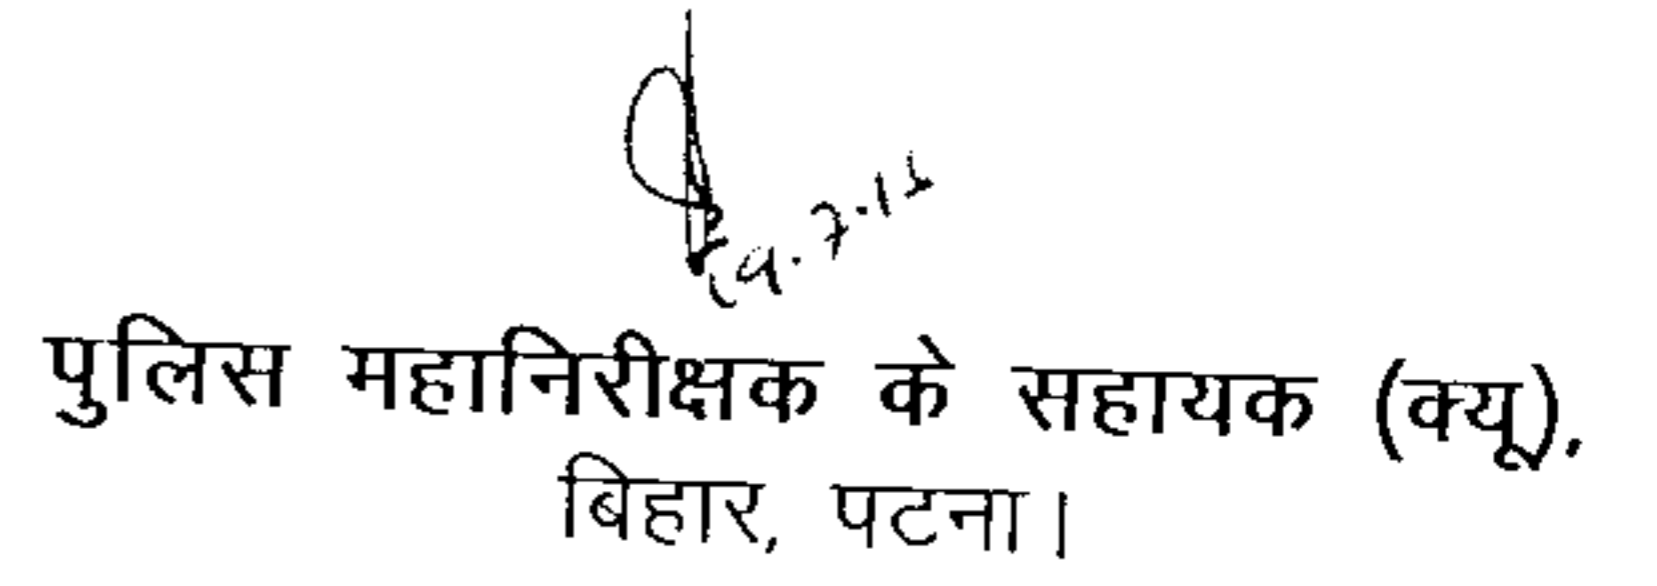 पुलिस महानिरीक्षक के सहायक (क्यू),
बिहार, पटना।